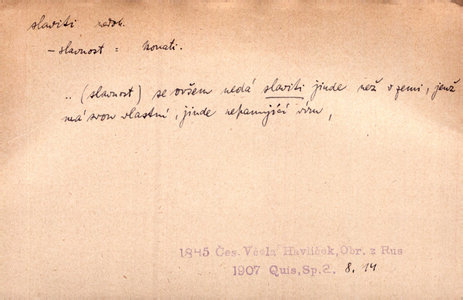 slaviti nedok.
– slavnost = konati.
.. (slavnost) se ovšem nedá slaviti jinde než v zemi, jenž
má svou vlastní, jinde nepanující víru,
1845 Čes. Včela Havlíček, Obr. z Rus
1907 Quis, Sp. 2. 8. 14